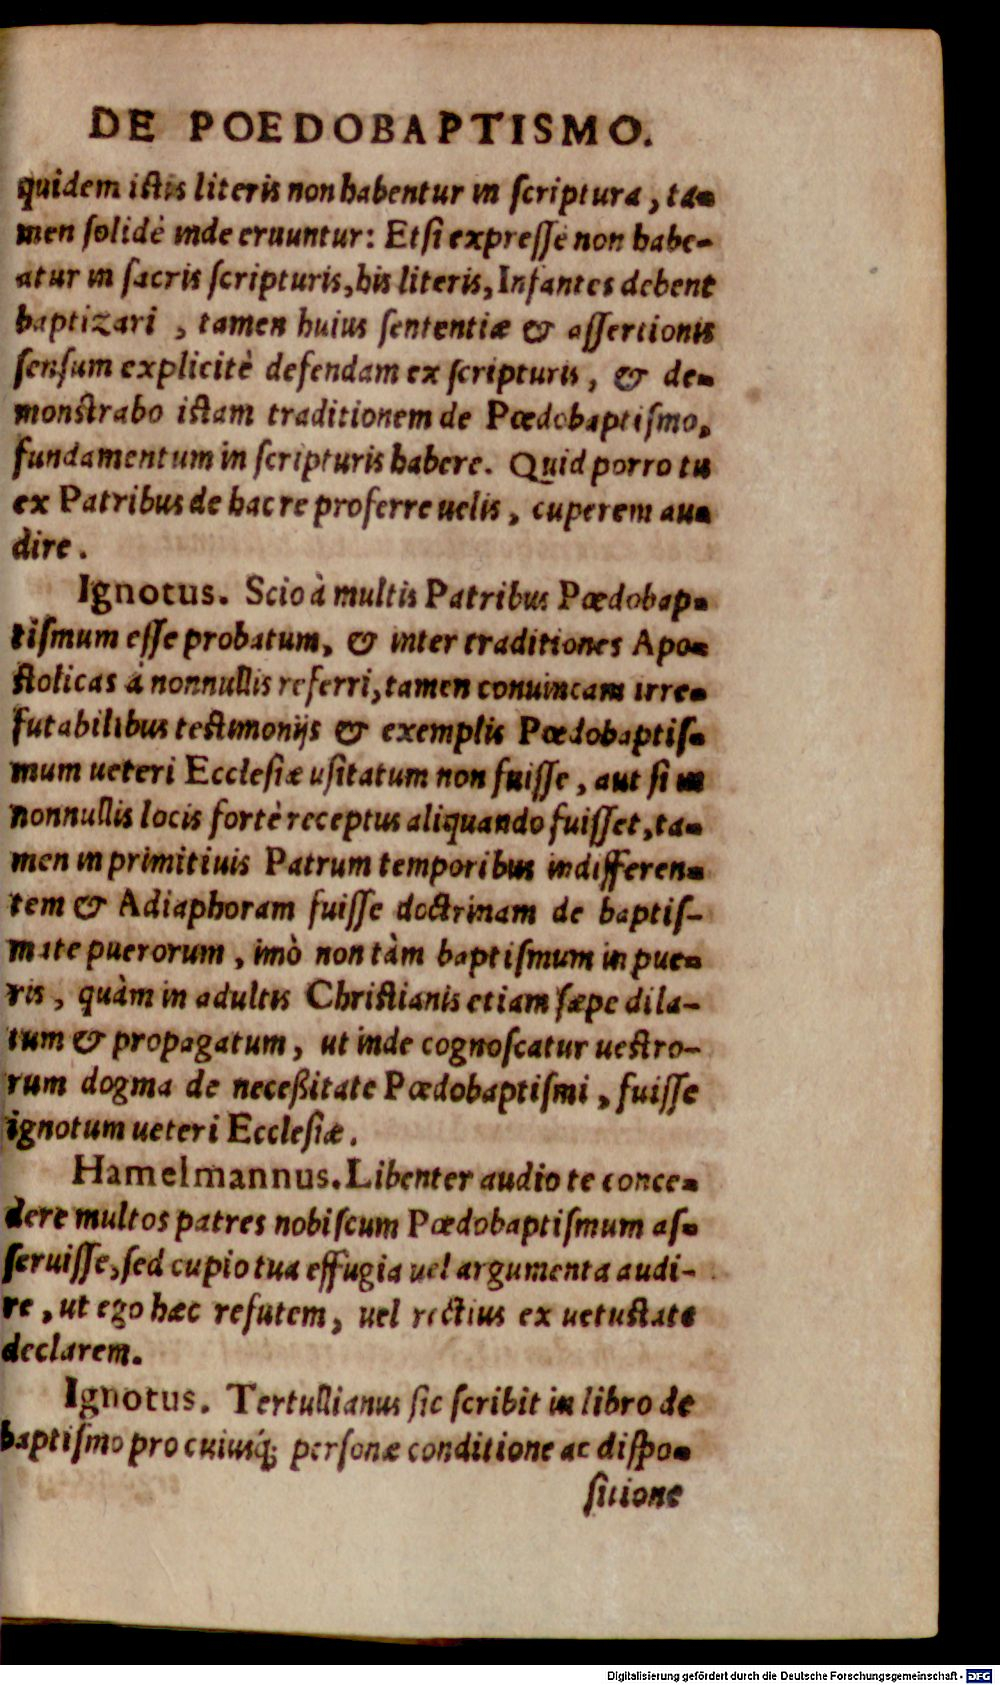 DE POEDOBAPTISMO.
quidem iſtis literis non habentur in ſcriptura, ta-
men ſolidè inde eruuntur: Etſi expreſſè non habe-
atur in ſacris ſcripturis, his literis, Infantes debent
baptizari, tamen huius ſententiæ & aſſertionis
ſenſum explicitè defendam ex ſcripturis, & de-
monſtrabo iſtam traditionem de Pœdobaptiſmo,
fundamentum in ſcripturis habere. Quid porro tu
ex Patribus de hac re proferre uelis, cuperem au-
dire.
Ignotus. Scio à multis Patribus Pœdobap-
tiſmum eſſe probatum, & inter traditiones Apo-
ſtolicas à nonnullis referri, tamen conuincam irre-
futabilibus teſtimonijs & exemplis Pœdobaptiſ-
mum ueteri Eccleſiæ uſitatum non fuiſſe, aut ſi in
nonnullis locis fortè receptus aliquando fuiſſet, ta-
men in primitiuis Patrum temporibus indifferen-
tem & Adiaphoram fuiſſe doctrinam de baptiſ-
mate puerorum, imò non tàm baptiſmum in pue-
ris, quàm in adultis Chriſtianis etiam ſæpe dila-
tum & propagatum, ut inde cognoſcatur ueſtro-
rum dogma de neceßitate Pœdobaptiſmi, fuiſſe
ignotum ueteri Eccleſiæ.
Hamelmannus. Libenter audio te conce-
dere multos patres nobiſcum Pœdobaptiſmum aſ-
ſeruiſſe, ſed cupio tua effugia uel argumenta audi-
re, ut ego hæc refutem, uel rectius ex uetuſtate
declarem.
Ignotus. Tertullianus ſic ſcribit in libro de
baptiſmo pro cuiusq́; perſonæ conditione ac diſpo-
ſitione
Digitalisierung gefördert durch die Deutsche Forschungsgemeinschaft - DFG